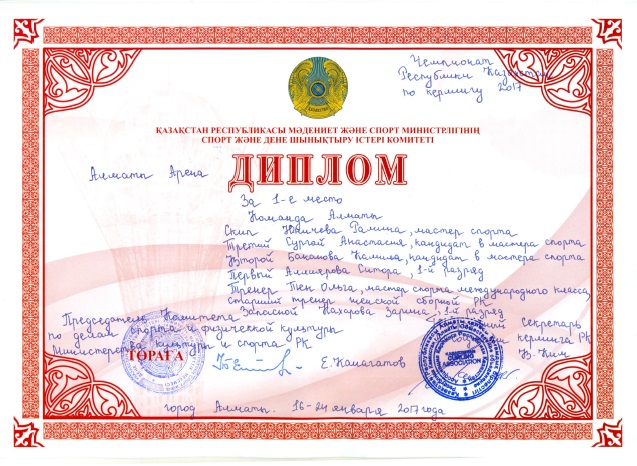 Чемпионат
Республики Казахстан
по керлингу 2017
ҚАЗАҚСТАН РЕСПУБЛИКАСЫ МӘДЕНИЕТ ЖӘНЕ СПОРТ МИНИСТРЛІГІНІҢ
СПОРТ ЖӘНЕ ДЕНЕ ШЫНЫҚТЫРУ ІСТЕРІ КОМИТЕТІ
Алматы Арена
ДИПЛОМ
За 1-е место
Команда Алматы
Скип Юничева Рамина, мастер спорта
Третий Сургай Анастасия, кандидат в мастера спорта
Второй Баканова Камила, кандидат в мастера спорта
Первый Алиярова Ситора, 1-й разряд
Тренер Тен Ольга, мастер спорта международного класса,
старший тренер женской сборной РК
Запасной Кахарова Зарина, 1-й разряд
Председатель Комитета
по делам спорта и физической культуры
Министерства культуры и спорта РК
ТӨРАҒА
Е. Канагатов
секретарь
керлинга РК
В. Ким
город Алматы. 16-24 января 2017 года